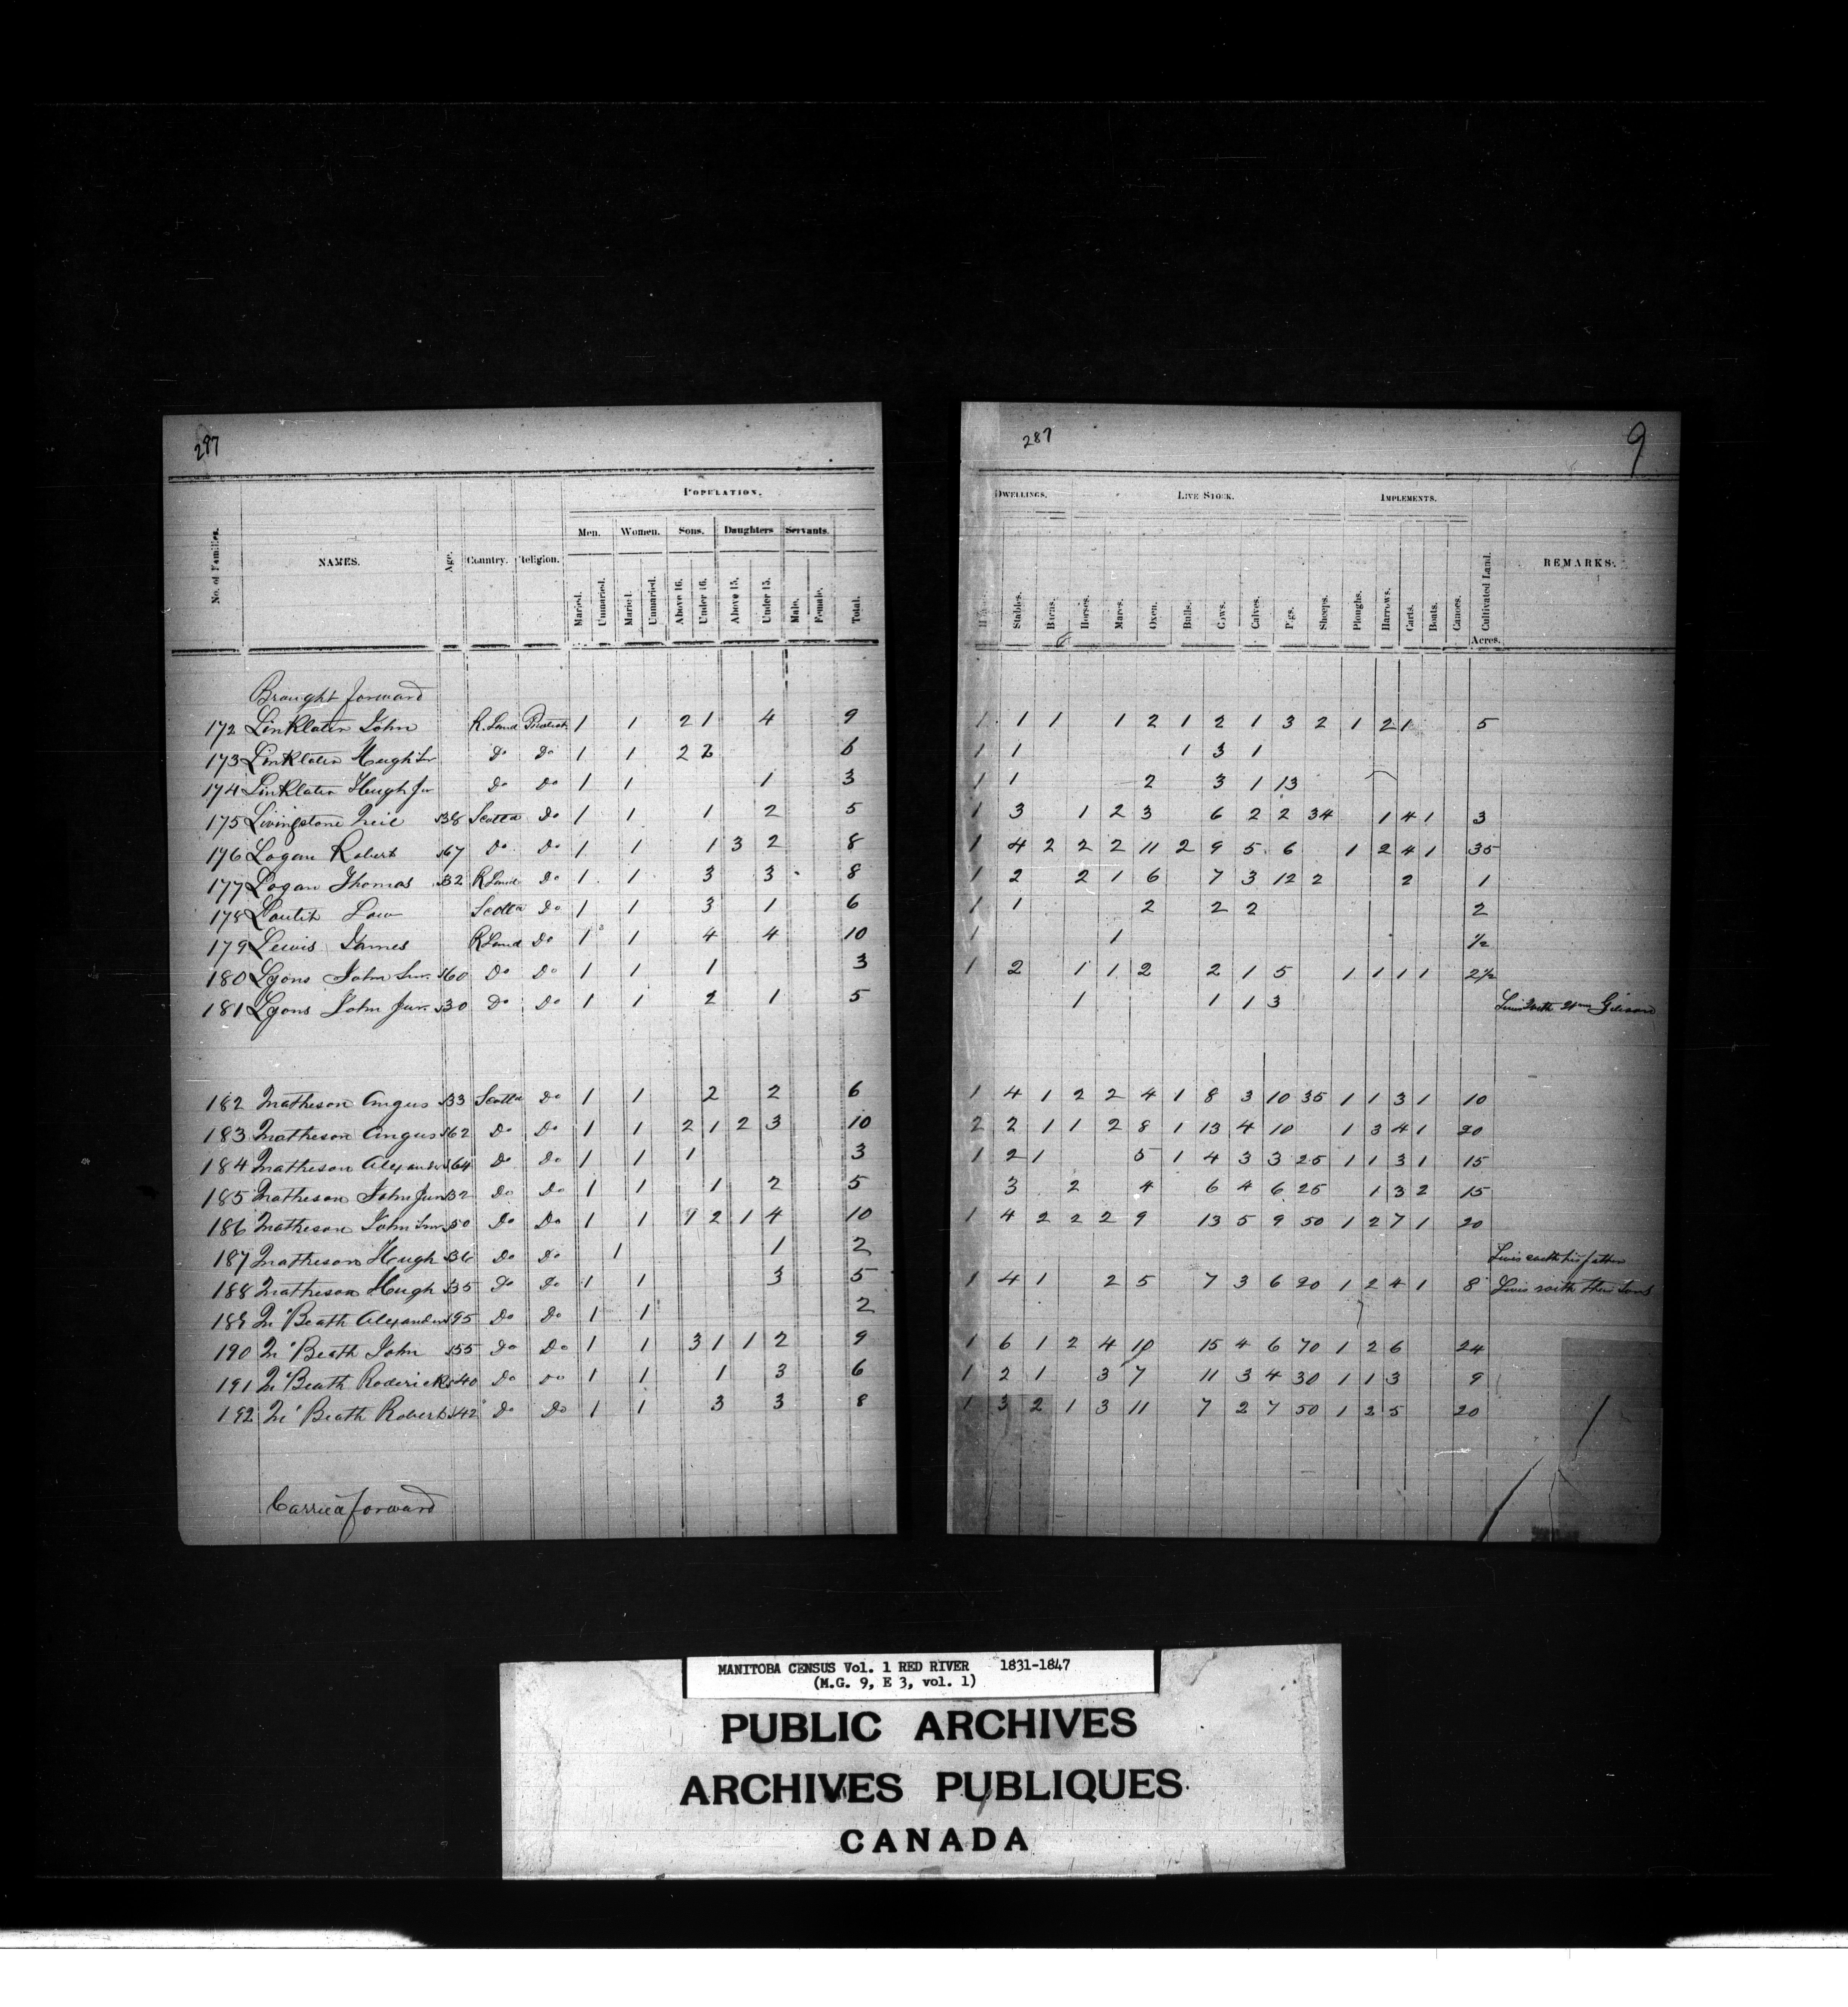 297
POPULATION.
No. of Families.
NAMES.
Age.
Country.
Religion.
Men.
Women.
Sons.
Daughters
Servants.
Married.
Unmarried.
Married.
Unmarried.
Above 16.
Under 16.
Above 15.
Under 15.
Male.
Female.
Total.
Brought forward
172 Linklater John R. Land Protest. 1 1 2 1 4 9
173 Linklater Hugh Sr Do Do 1 1 2 2 6
174 Linklater Hugh Jr Do Do 1 1 1 3
175 Livingstone Neil 38 Scotla Do 1 1 1 2 5
176 Logan Robert 67 Do Do 1 1 1 3 2 8
177 Logan Thomas 32 R Land Do 1 1 3 3 8
178 Loutit Scotla Do 1 1 3 1 6
179 Lewis James R Land Do 1 1 4 4 10
180 Lyons John Snr. 60 Do Do 1 1 1 3
181 Lyons John Jun. 30 Do Do 1 1 2 1 5
182 Matheson Angus 33 Scotla Do 1 1 2 2 6
183 Matheson Angus 62 Do Do 1 1 2 1 2 3 10
184 Matheson Alexander 64 Do Do 1 1 1 3
185 Matheson John Jun 32 Do Do 1 1 1 2 5
186 Matheson John Snr 50 Do Do 1 1 9 2 1 4 10
187 Matheson Hugh 36 Do Do 1 1 2
188 Matheson Hugh 35 Do Do 1 1 3 5
189 Mc Beath Alexander 95 Do Do 1 1 2
190 Mc Beath John 55 Do Do 1 1 3 1 1 2 9
191 Mc Beath Roderick 40 Do Do 1 1 1 3 6
192 Mc Beath Robert 42 Do Do 1 1 3 3 8
Carried forward
287
9
DWELLINGS.
LIVE STOCK.
IMPLEMENTS.
REMARKS.
Stables.
Barns.
Horses.
Mares.
Oxen.
Bulls.
Cows.
Calves.
Pigs.
Sheeps.
Ploughs.
Harrows.
Carts.
Boats.
Canoes.
Cultivated Land.
Acres.
1 1 1 1 2 1 2 1 3 2 1 2 1 5
1 1 1 3 1
1 1 2 3 1 13
1 3 1 2 3 6 2 2 34 1 4 1 3
1 4 2 2 2 11 2 9 5 6 1 2 4 1 35
1 2 2 1 6 7 3 12 2 2 1
1 1 2 2 2 2
1 1 ½
1 2 1 1 2 2 1 5 1 1 1 1 2½
1 1 1 3
1 4 1 2 2 4 1 8 3 10 35 1 1 3 1 10
2 2 1 1 2 8 1 13 4 10 1 3 4 1 20
1 2 1 5 1 4 3 3 25 1 1 3 1 15
3 2 4 6 4 6 25 1 3 2 15
1 4 2 2 2 9 13 5 9 50 1 2 7 1 20
Lives with his father
1 4 1 2 5 7 3 6 20 1 2 4 1 8
Lives with their Sons
1 6 1 2 4 10 15 4 6 70 1 2 6 24
1 2 1 3 7 11 3 4 30 1 1 3 9
1 3 2 1 3 11 7 2 7 50 1 2 5 20
MANITOBA CENSUS Vol. 1 RED RIVER 1831-1847
(M.G. 9, E 3, vol. 1)
PUBLIC ARCHIVES
ARCHIVES PUBLIQUES
CANADA